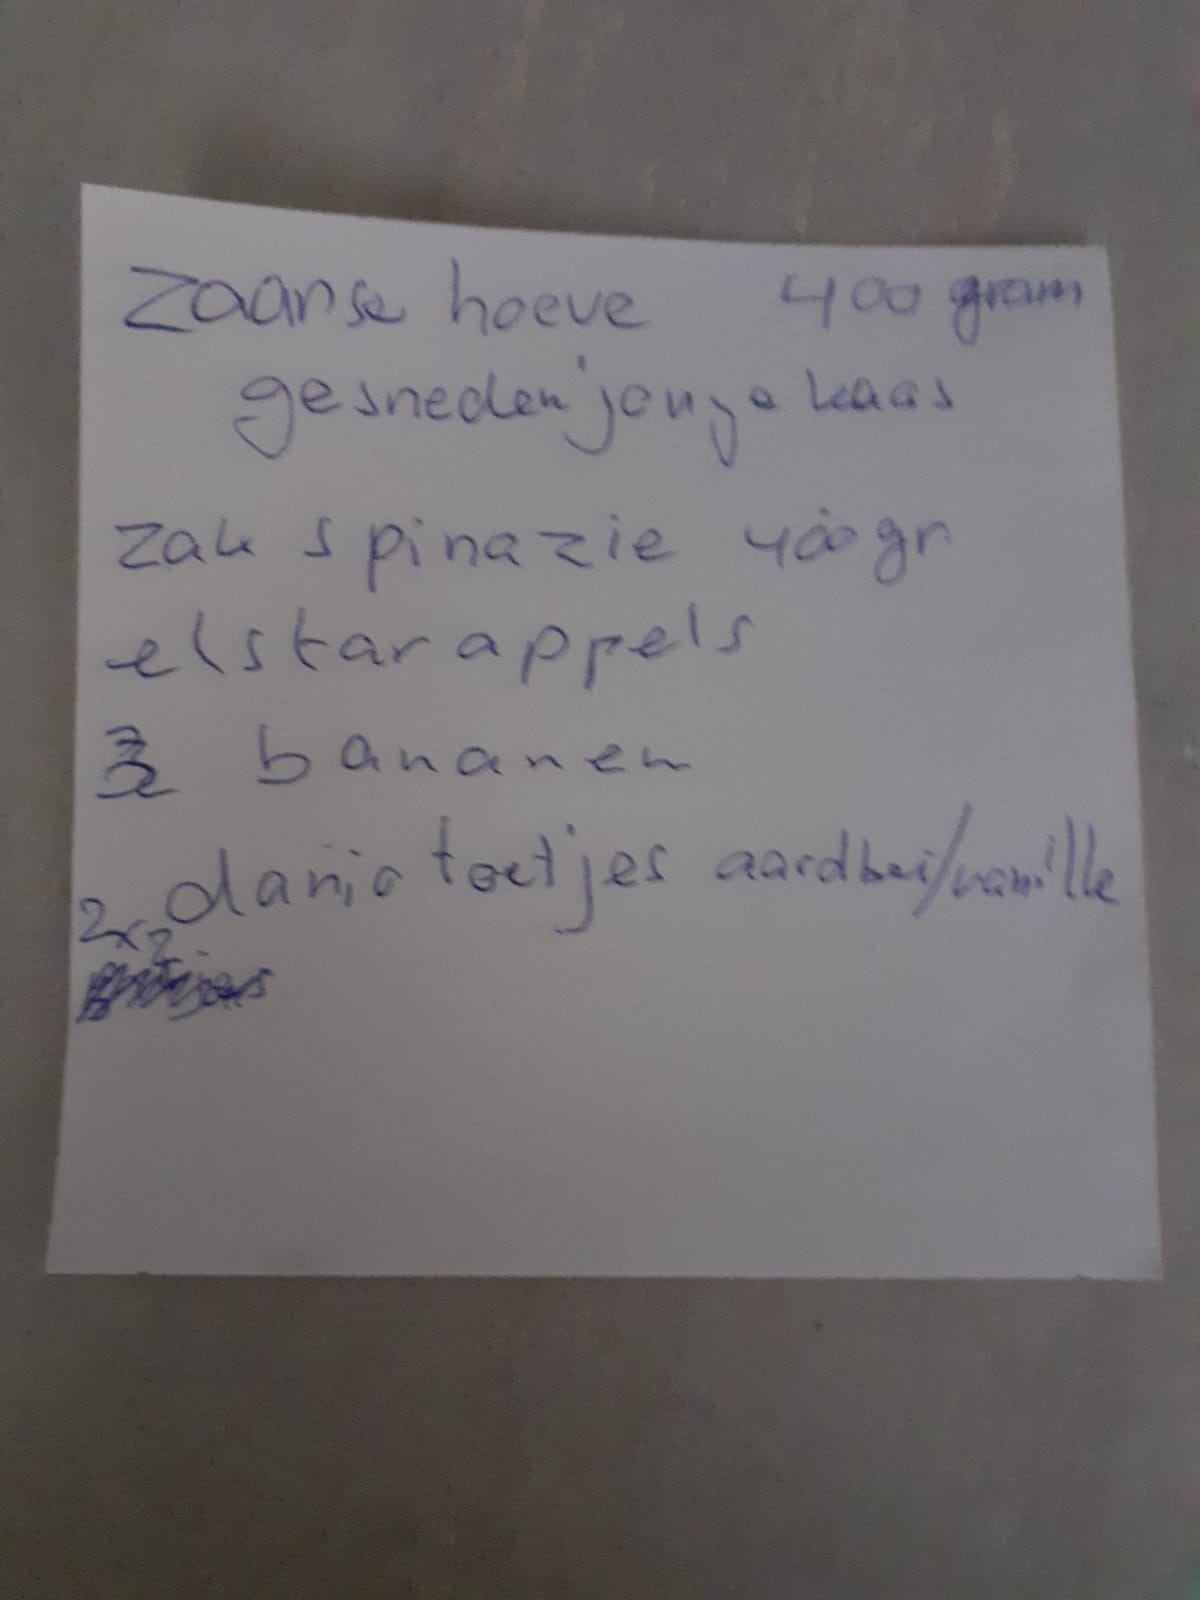 Zaanse hoeve 400 gram
gesneden jonge kaas
zak spinazie 400gr
elstar appels
bananen
2x2 danio toetjes aardbei/vanille